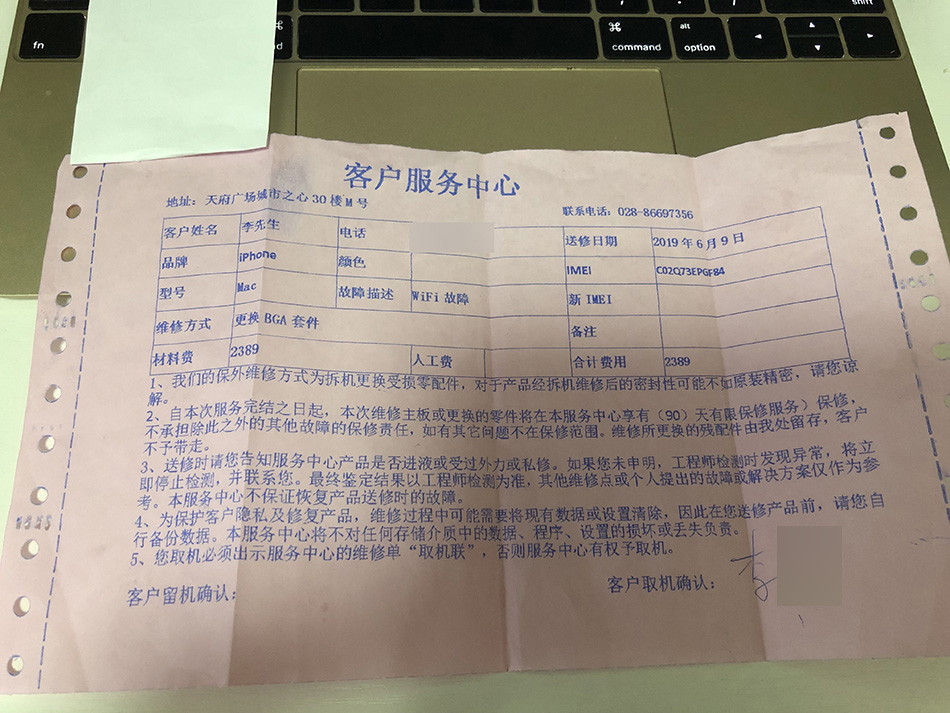 shift
fn
⌘
command
alt
option
客户服务中心
地址：天府广场城市之心 30 楼 M 号
联系电话：028-86697356
客户姓名 李先生 电话 送修日期 2019 年 6 月 9 日
品牌 iPhone 颜色 IMEI C02Q73EPGF84
型号 Mac 故障描述 WiFi 故障 新 IMEI
维修方式 更换 BGA 套件 备注
材料费 2389 人工费 合计费用 2389
1、我们的保外维修方式为拆机更换受损零配件，对于产品经拆机维修后的密封性可能不如原装精密，请您谅
解。
2、自本次服务完结之日起，本次维修主板或更换的零件将在本服务中心享有（90）天有限保修服务）保修，
不承担除此之外的其他故障的保修责任，如有其它问题不在保修范围。维修所更换的残配件由我处留存，客户
不予带走。
3、送修时请您告知服务中心产品是否进液或受过外力或私修。如果您未申明，工程师检测时发现异常，将立
即停止检测，并联系您。最终鉴定结果以工程师检测为准，其他维修点或个人提出的故障或解决方案仅作为参
考。本服务中心不保证恢复产品送修时的故障。
4、为保护客户隐私及修复产品，维修过程中可能需要将现有数据或设置清除，因此在您送修产品前，请您自
行备份数据。本服务中心将不对任何存储介质中的数据、程序、设置的损坏或丢失负责。
5、您取机必须出示服务中心的维修单“取机联”，否则服务中心有权予取机。
客户留机确认：
客户取机确认： 李